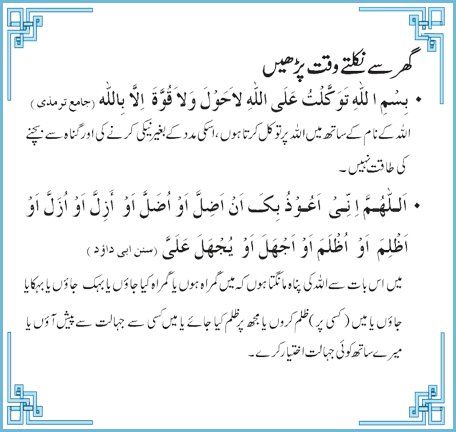 گھر سے نکلتے وقت پڑھیں
• بِسْمِ اللّٰهِ تَوَكَّلْتُ عَلَى اللّٰهِ لاَحَوْلَ وَلاَ قُوَّةَ اِلاَّ بِاللّٰه (جامع ترمذی)
اللہ کے نام کے ساتھ میں اللہ پر توکل کرتا ہوں، اسکی مدد کے بغیر نیکی کرنے کی اور گناہ سے بچنے
کی طاقت نہیں۔
• اَللّٰهُمَّ اِنِّىْ اَعُوْذُ بِكَ اَنْ اَضِلَّ اَوْ اُضَلَّ اَوْ اَزِلَّ اَوْ اُزَلَّ اَوْ
اَظْلِمَ اَوْ اُظْلَمَ اَوْ اَجْهَلَ اَوْ يُجْهَلَ عَلَىَّ (سنن ابی داؤد)
میں اس بات سے اللہ کی پناہ مانگتا ہوں کہ میں گمراہ ہوں یا گمراہ کیا جاؤں یا بہک جاؤں یا بہکایا
جاؤں یا میں (کسی پر) ظلم کروں یا مجھ پر ظلم کیا جائے یا میں کسی سے جہالت سے پیش آؤں یا
میرے ساتھ کوئی جہالت اختیار کرے۔